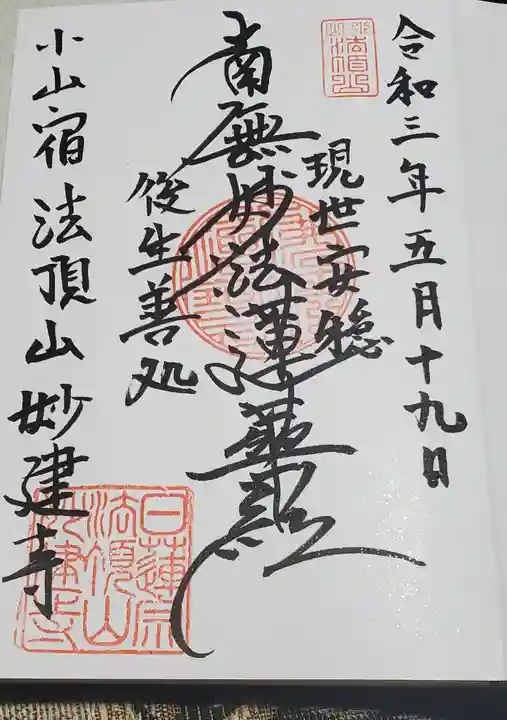 令和三年五月十九日
現世安穏
南無妙法蓮華経
後生善処
小山宿法頂山妙建寺
法頂山
日蓮宗
法頂山
妙建寺